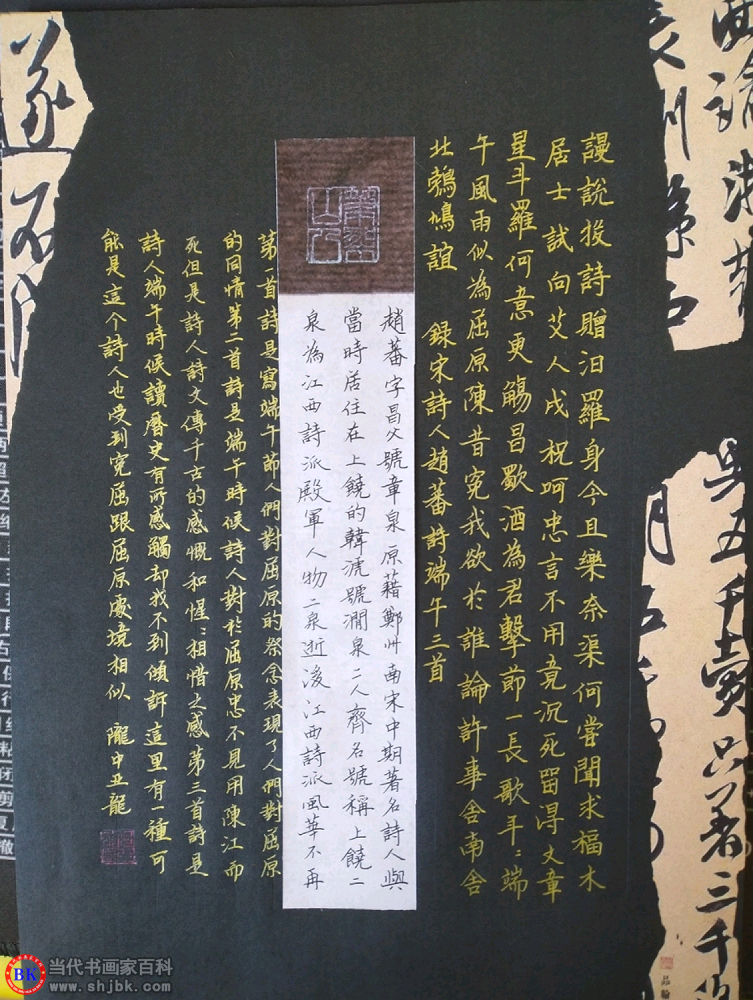 謾說投詩贈汨羅身今且樂奈渠何嘗聞求福木
居士試向艾人成祝呵忠言不用竟沉死留得文章
星斗羅何意更觴昌歜酒為君擊節一長歌年〻端
午風雨似為屈原陳昔冤我欲於誰論許事舍南舍
北鵓鳩誼 錄宋詩人趙蕃詩端午三首
趙蕃字昌父號章泉原藉鄭州南宋中期著名詩人與
當時居住在上饒的韓淲號澗泉二人齊名號稱上饒二
泉為江西詩派殿軍人物二泉逝後江西詩派風華不再
第一首詩是寫端午節人們對屈原的祭念表現了人們對屈原
的同情第二首詩是端午時候詩人對於屈原忠不見用陳江而
死但是詩人詩文傳千古的感慨和惺〻相惜之感第三首詩是
詩人端午時候讀曆史有所感觸却找不到傾訴這里有一種可
能是這个詩人也受到冤屈跟屈原處境相似 隴中亚龍
BK
当代书画家百科
www.shjbk.com